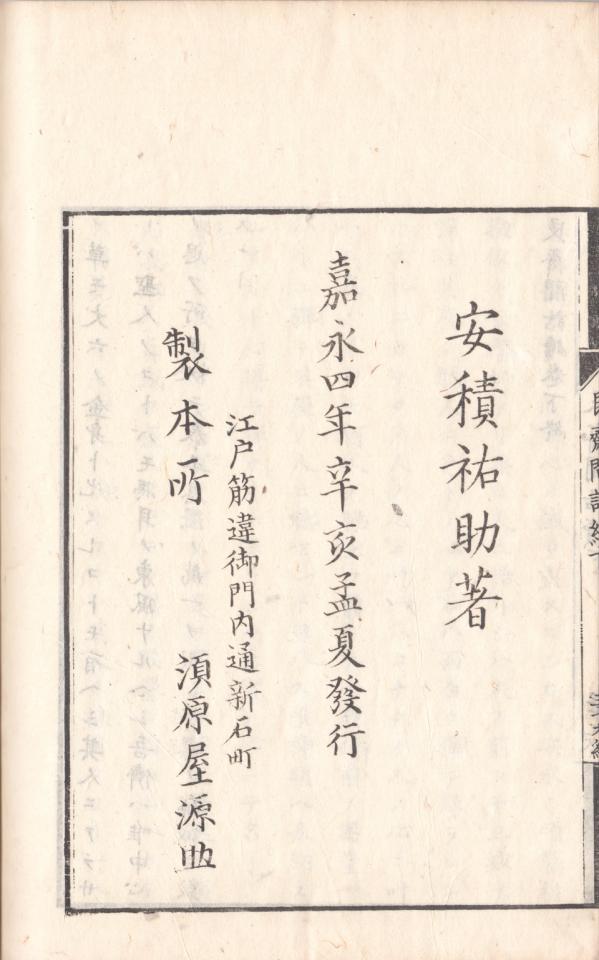 安積祐助著
嘉永四年辛亥孟夏發行
江戸筋違御門内通新石町
製本所 須原屋源助